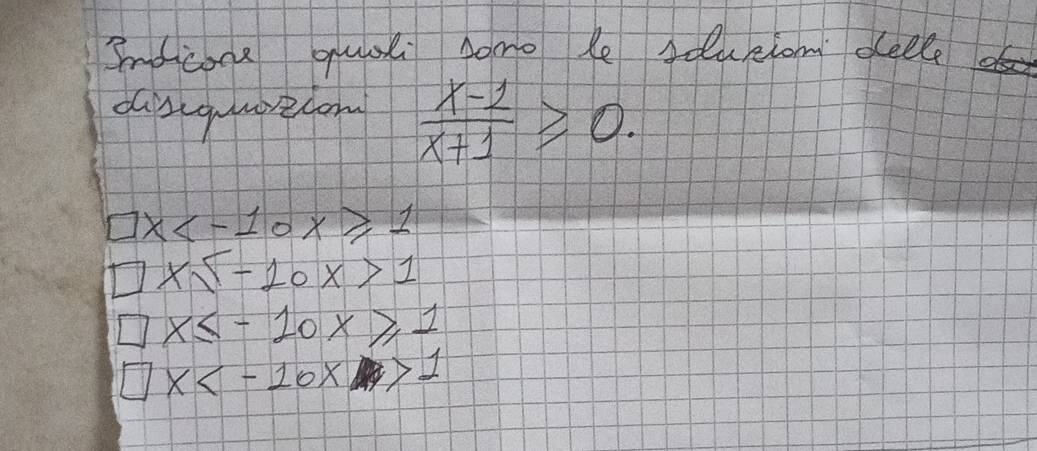 Indicare quali sono le soluzioni delle
disequazioni x-1/x+1 ≥ 0.
□ x < -1 o x ≥ 1
□ x ≤ -1 o x > 1
□ x ≤ -1 o x ≥ 1
□ x < -1 o x > 1